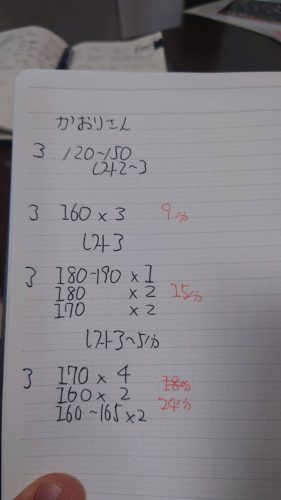 かおりさん
3 120~150
レスト2~3
3 160 × 3 9分
レスト3
3 180~190 × 1
180 × 2 15分
170 × 2
レスト3~5分
3 170 × 4 18分
160 × 2 24分
160~165 × 2